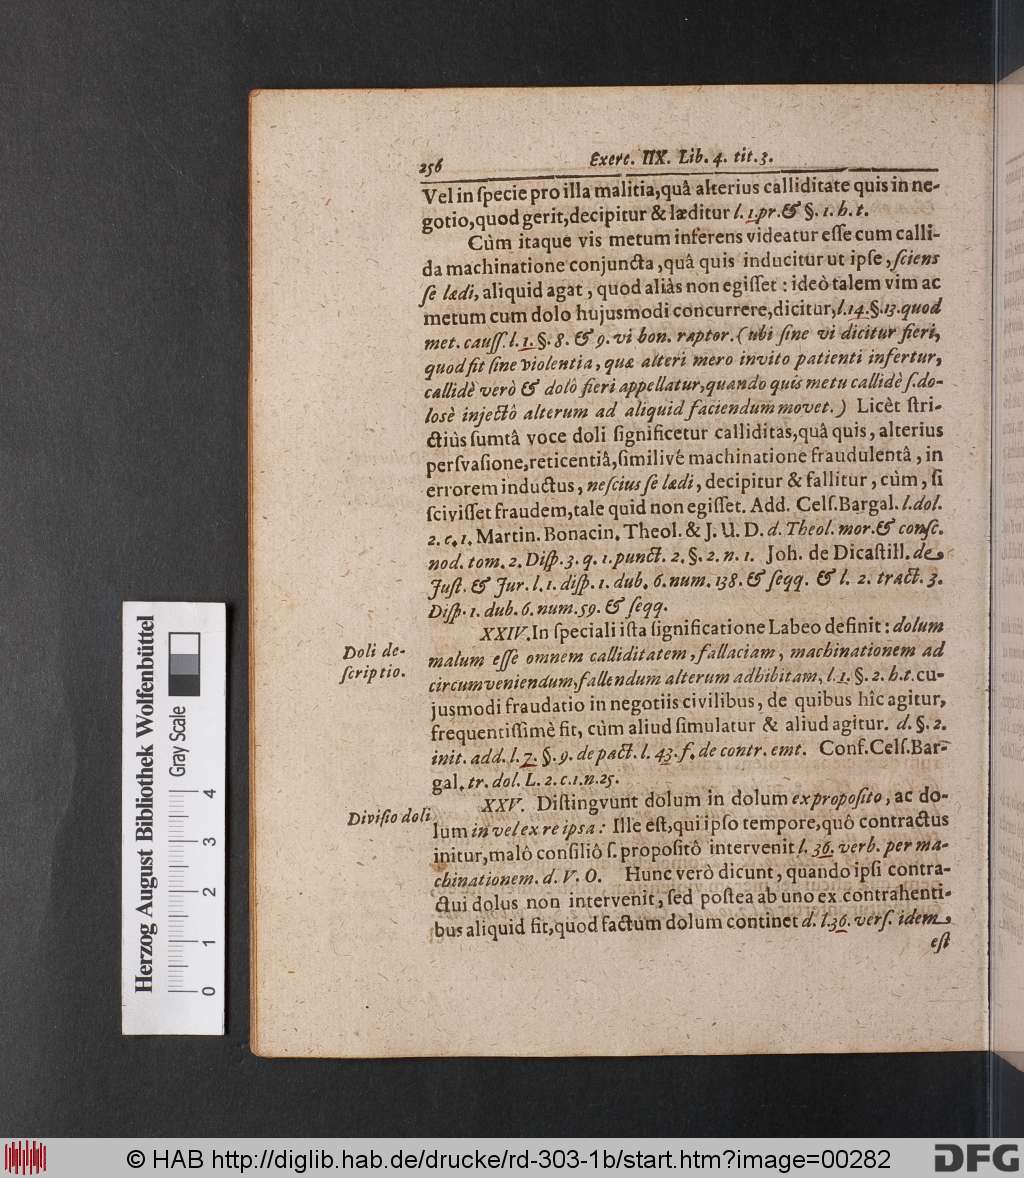 256 Exerc. IIX. Lib. 4. tit. 3.
Vel in ſpecie pro illa malitia, quâ alterius calliditate quis in ne-
gotio, quod gerit, decipitur & læditur l. 1. pr. & §. 1. h. t.
Cùm itaque vis metum inferens videatur eſſe cum calli-
da machinatione conjuncta, quâ quis inducitur ut ipſe, ſciens
ſe lædi, aliquid agat, quod aliàs non egiſſet: ideò talem vim ac
metum cum dolo hujusmodi concurrere, dicitur, l. 14. §. 13. quod
met. cauſſ. l. 1. §. 8. & 9. vi bon. raptor. (ubi ſine vi dicitur fieri,
quod fit ſine violentia, quæ alteri mero invito patienti infertur,
callidè verò & dolô fieri appellatur, quando quis metu callidè ſ. do-
losè injectô alterum ad aliquid faciendum movet.) Licèt ſtri-
ctiùs ſumtâ voce doli ſignificetur calliditas, quâ quis, alterius
perſvaſione, reticentiâ, ſimilivé machinatione fraudulentâ, in
errorem inductus, neſcius ſe lædi, decipitur & fallitur, cùm, ſi
ſciviſſet fraudem, tale quid non egiſſet. Add. Celſ. Bargal. l. dol.
2. c. 1. Martin. Bonacin. Theol. & J. U. D. d. Theol. mor. & conſc.
nod. tom. 2. Diſp. 3. q. 1. punct. 2. §. 2. n. 1. Joh. de Dicaſtill. de
Juſt. & Jur. l. 1. diſp. 1. dub. 6. num. 138. & ſeqq. & l. 2. tract. 3.
Diſp. 1. dub. 6. num. 59. & ſeqq.
Doli de-
ſcriptio.
XXIV. In ſpeciali iſta ſignificatione Labeo definit: dolum
malum eſſe omnem calliditatem, fallaciam, machinationem ad
circumveniendum, fallendum alterum adhibitam, l. 1. §. 2. h. t. cu-
jusmodi fraudatio in negotiis civilibus, de quibus hîc agitur,
frequentiſſimè fit, cùm aliud ſimulatur & aliud agitur. d. §. 2.
init. add. l. 7. §. 9. de pact. l. 43. f. de contr. emt. Conf. Celſ. Bar-
gal. tr. dol. L. 2. c. 1. n. 25.
Diviſio doli
XXV. Diſtingvunt dolum in dolum ex propoſito, ac do-
lum in vel ex re ipsa: Ille eſt, qui ipſo tempore, quô contractus
initur, malô conſiliô ſ. propoſitô intervenit l. 36. verb. per ma-
chinationem. d. V. O. Hunc verò dicunt, quando ipſi contra-
ctui dolus non intervenit, ſed poſtea ab uno ex contrahenti-
bus aliquid fit, quod factum dolum continet d. l. 36. verſ. idem
eſt
Herzog August Bibliothek Wolfenbüttel
Gray Scale
0 1 2 3 4
© HAB http://diglib.hab.de/drucke/rd-303-1b/start.htm?image=00282
DFG